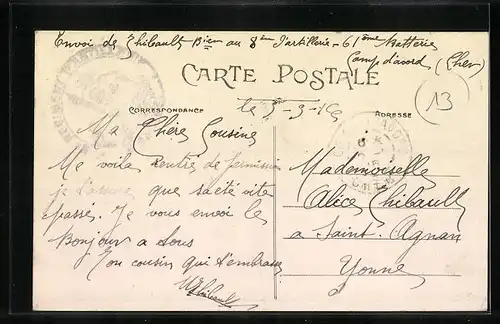 Envoi de Thibault Bien au 8ème d'artillerie - 61ème Batterie
Camp d'avord (Cher)
CARTE POSTALE
13
CORRESPONDANCE
ADRESSE
le 5-3-19
Ma Chère Cousine
Me voila rentré de permission
je t'assure que sa été vite
passés. Je vous envoi le
Bonjour a tous
Ton cousin qui t'embrasse
Thibault
Mademoiselle
Alice Thibault
a Saint Agnan
Yonne